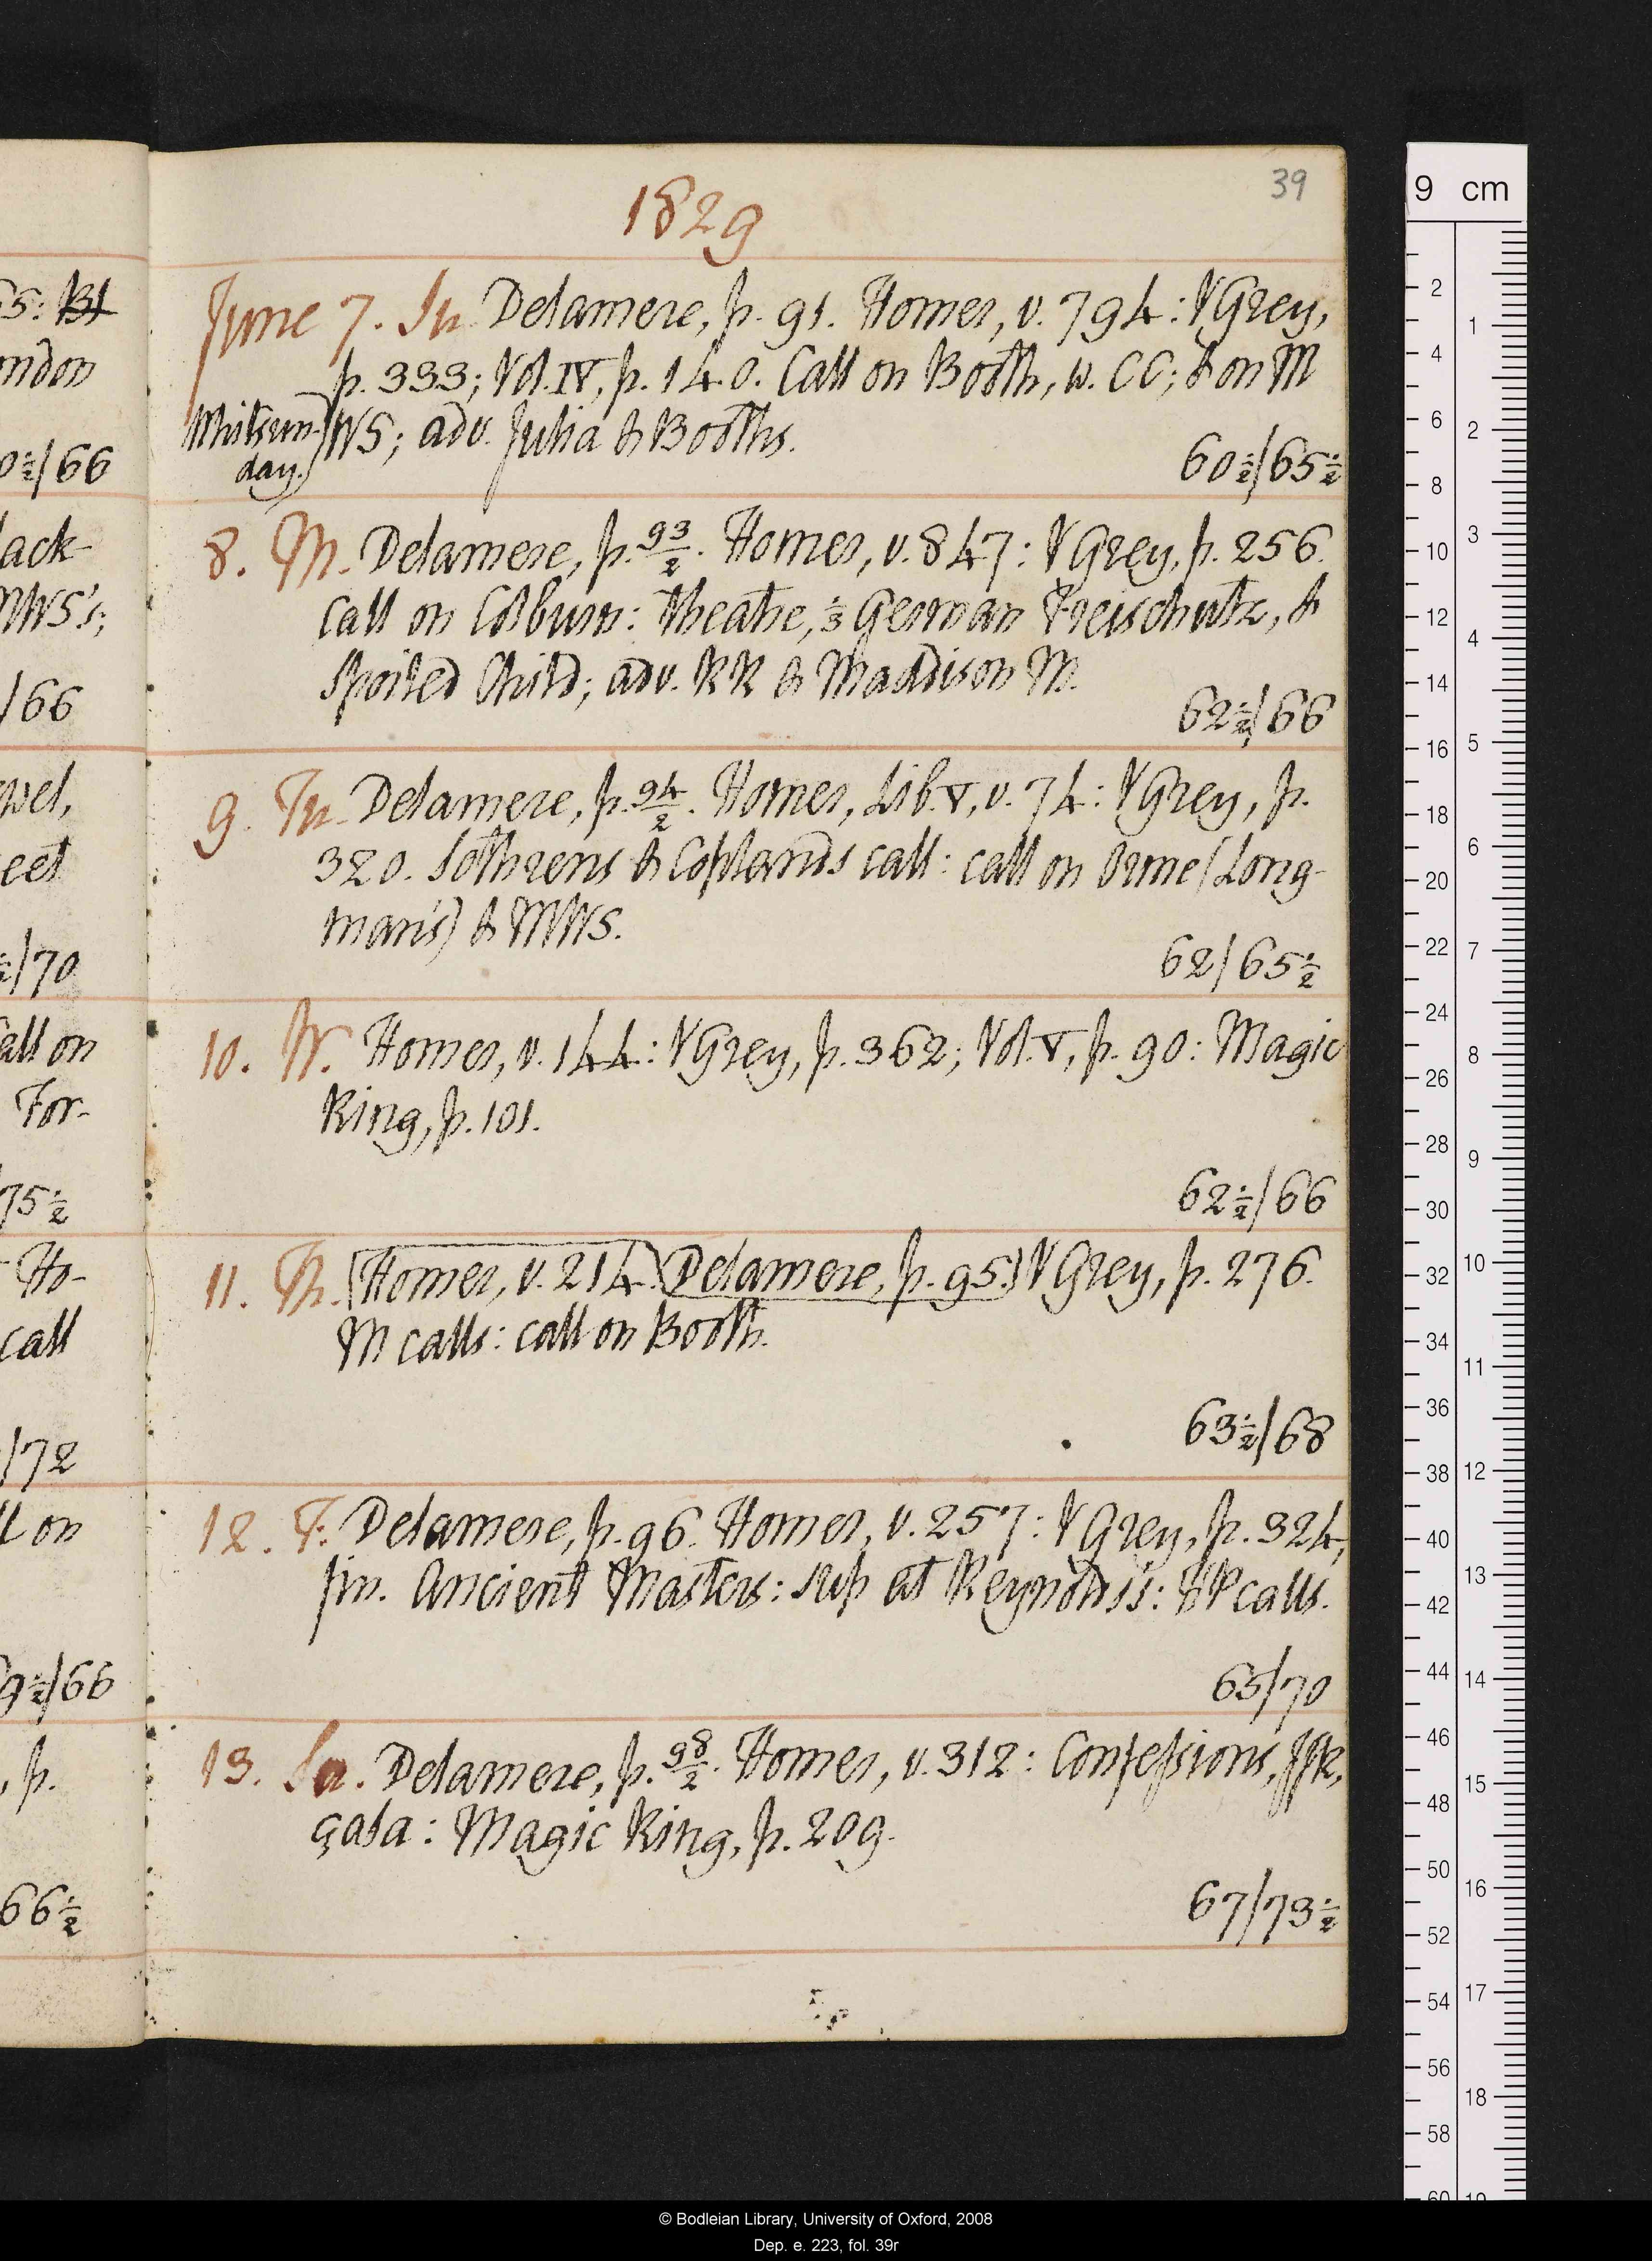 39
1829
June 7. Su. Delamere, p. 91. Homer, v. 794: V Grey,
p. 333; Vol. IV, p. 140. Call on Booth, w. CC; & on M
Whitsun-day. WS; adv. Julia & Booths.
60½/65½
8. M. Delamere, p. 93/2. Homer, v. 847: V Grey, p. 256.
Call on Colburn: Theatre, ⅓ German Freischutz, &
Spoiled Child; adv. KK & Maddison M.
62½/66
9. Tu. Delamere, p. 94/2. Homer, Lib. V, v. 74: V Grey, p.
320. Sothrens & Coplands call: call on Orme (Long-
man's) & MWS.
62/65½
10. W. Homer, v. 144: V Grey, p. 362; Vol. V, p. 90: Magic
Ring, p. 101.
62½/66
11. Th. (Homer, v. 214.)(Delamere, p. 95.) V Grey, p. 276.
M calls: call on Booth.
63½/68
12. F. Delamere, p. 96. Homer, v. 257: V Grey, p. 324,
fin. Ancient Masters: sup at Reynolds's: calls.
65/70
13. Sa. Delamere, p. 98/2. Homer, v. 312: Confessions, JJR,
çala: Magic Ring, p. 209.
67/73½
ondon
/66
ack-
MWS's;
/66
eet
/70
all on
For-
75½
Ho-
call
/72
on
/66
, p.
66½
9 cm
2
4
6
8
10
12
14
16
18
20
22
24
26
28
30
32
34
36
38
40
42
44
46
48
50
52
54
56
58
60
1
2
3
4
5
6
7
8
9
10
11
12
13
14
15
16
17
18
19
© Bodleian Library, University of Oxford, 2008
Dep. e. 223, fol. 39r